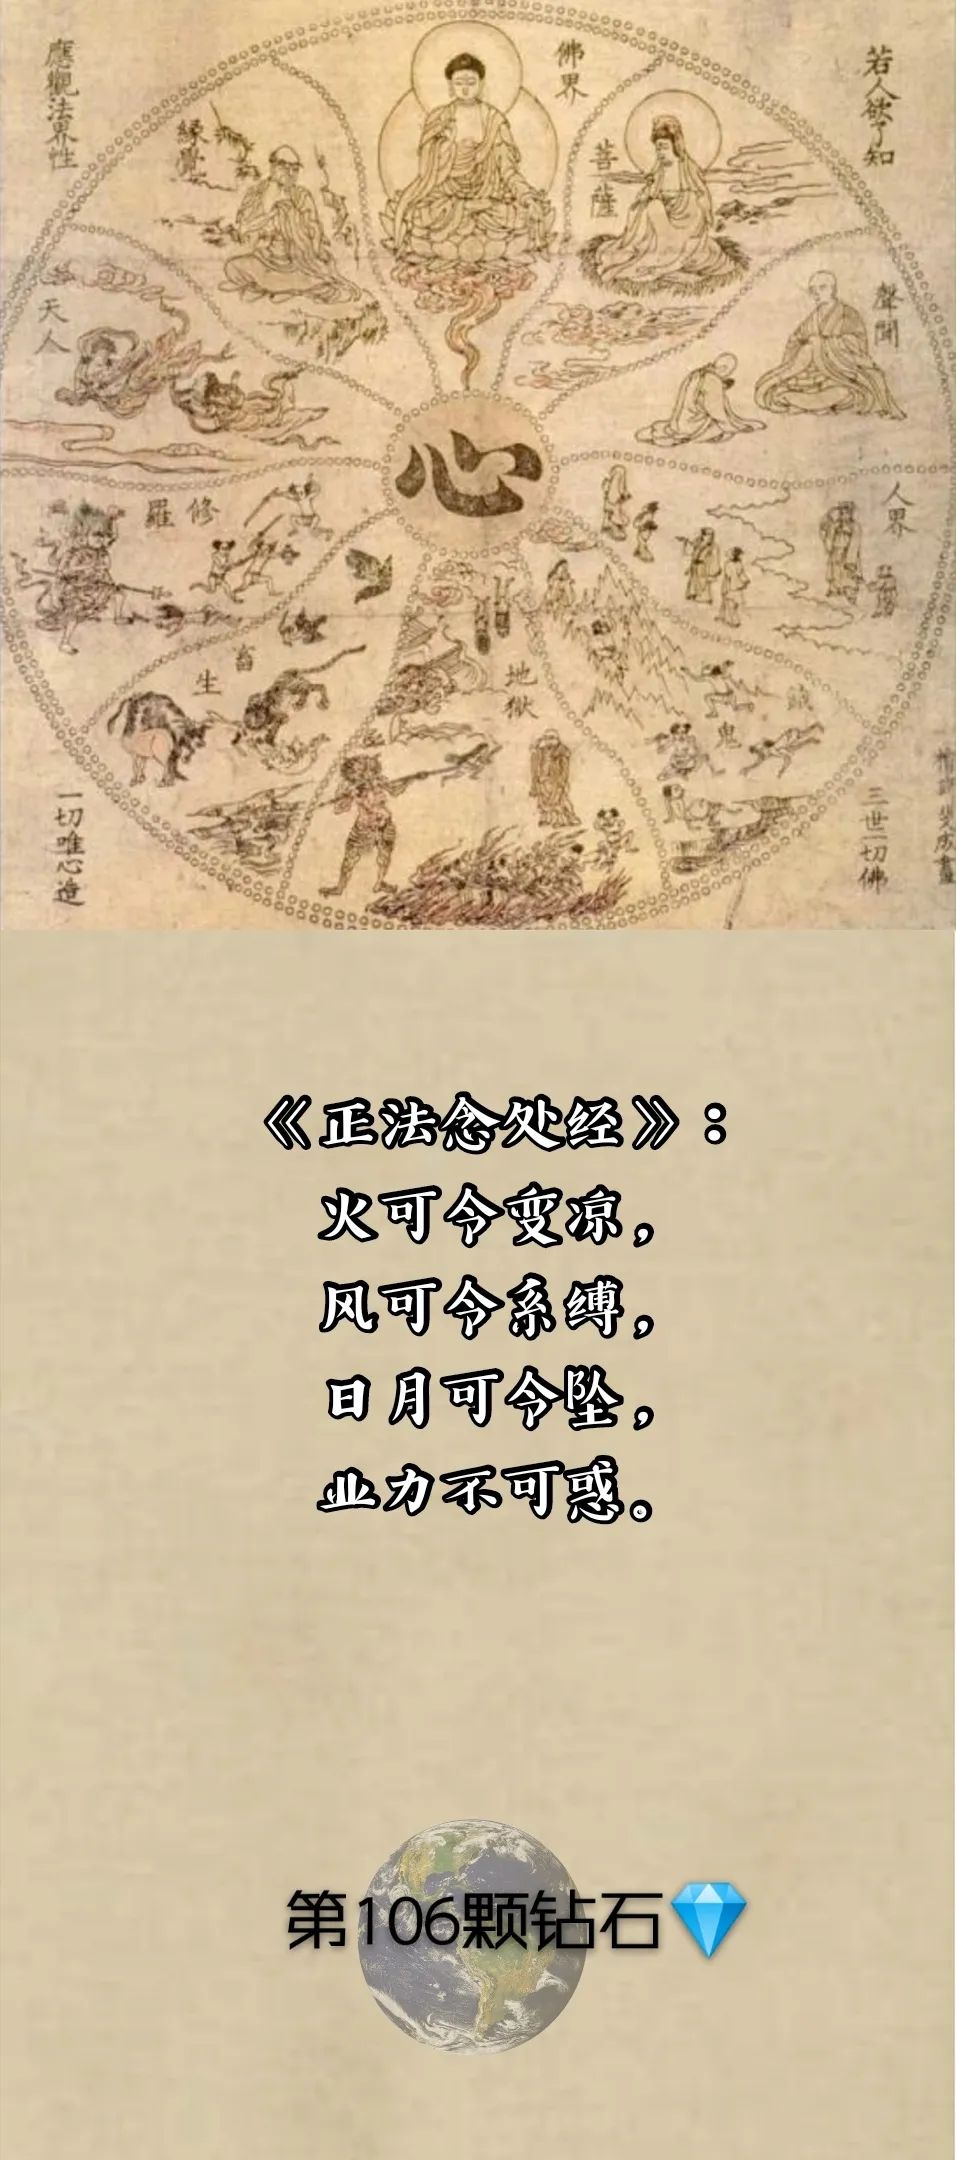 若人欲了知
三世一切佛
應觀法界性
一切唯心造
佛界
菩薩
緣覺
聲聞
天人
人界
修羅
畜生
地獄
餓鬼
心
《正法念处经》：
火可令变凉，
风可令系缚，
日月可令坠，
业力不可惑。
第106颗钻石💎